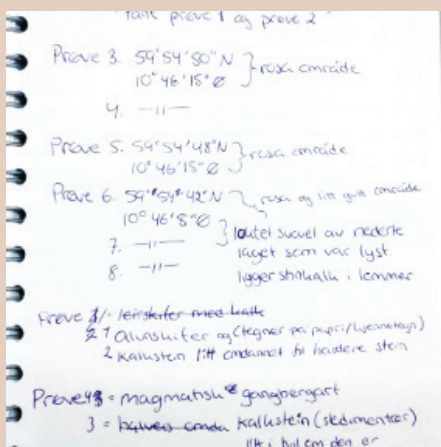 prøve 1 og prøve 2"
Prøve 3. 59°54'50"N
10°46'15"Ø } rosa område
4. —11—
Prøve 5. 59°54'48"N
10°46'15"Ø } rosa område
Prøve 6. 59°54'42"N
10°46'8"Ø } rosa og litt gult område
7. —11—
8. —11—
} luktet svovel av nederste
laget som var lyst.
ligger kalk i lemmer
Prøve 1/ leirskifer med kalk
2 1 Alunskifer og (tegner på papir/
2 Kalkstein litt omdannet til hardere stein
Prøve 4 = magmatisk gangbergart
3 = Kalkstein (sedimentær)
litt i om den er